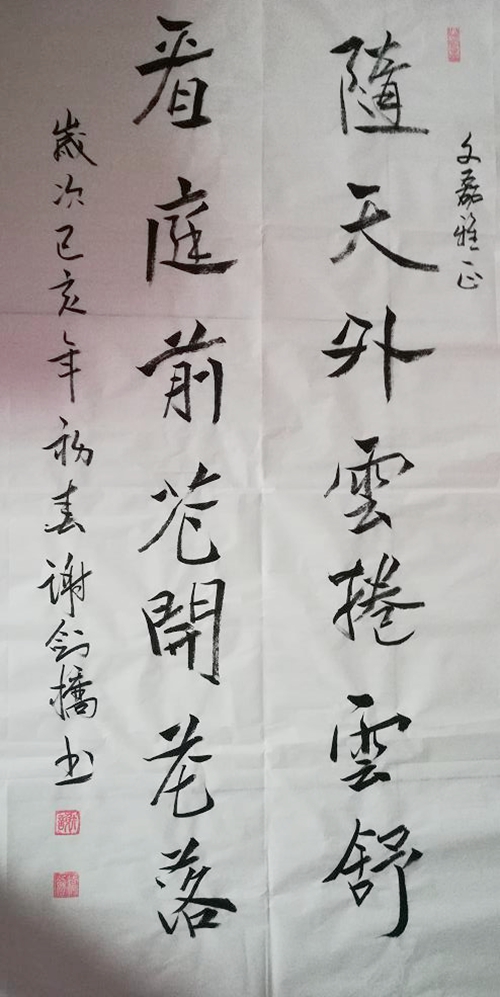 文磊雅正
隨天外雲捲雲舒
看庭前花開花落
歲次己亥年初春謝劍橋书